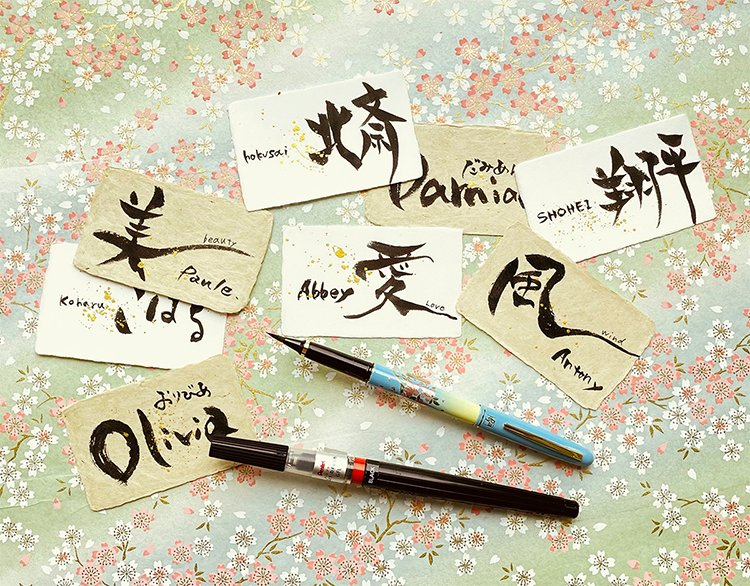 hokusai 北斎
だみあん
Damia
SHOHEI 翔平
美
beauty
Paule.
Koharu
はる
Abbey 愛
Love
風
wind
Antony
おりびあ
Olivia
BLACK